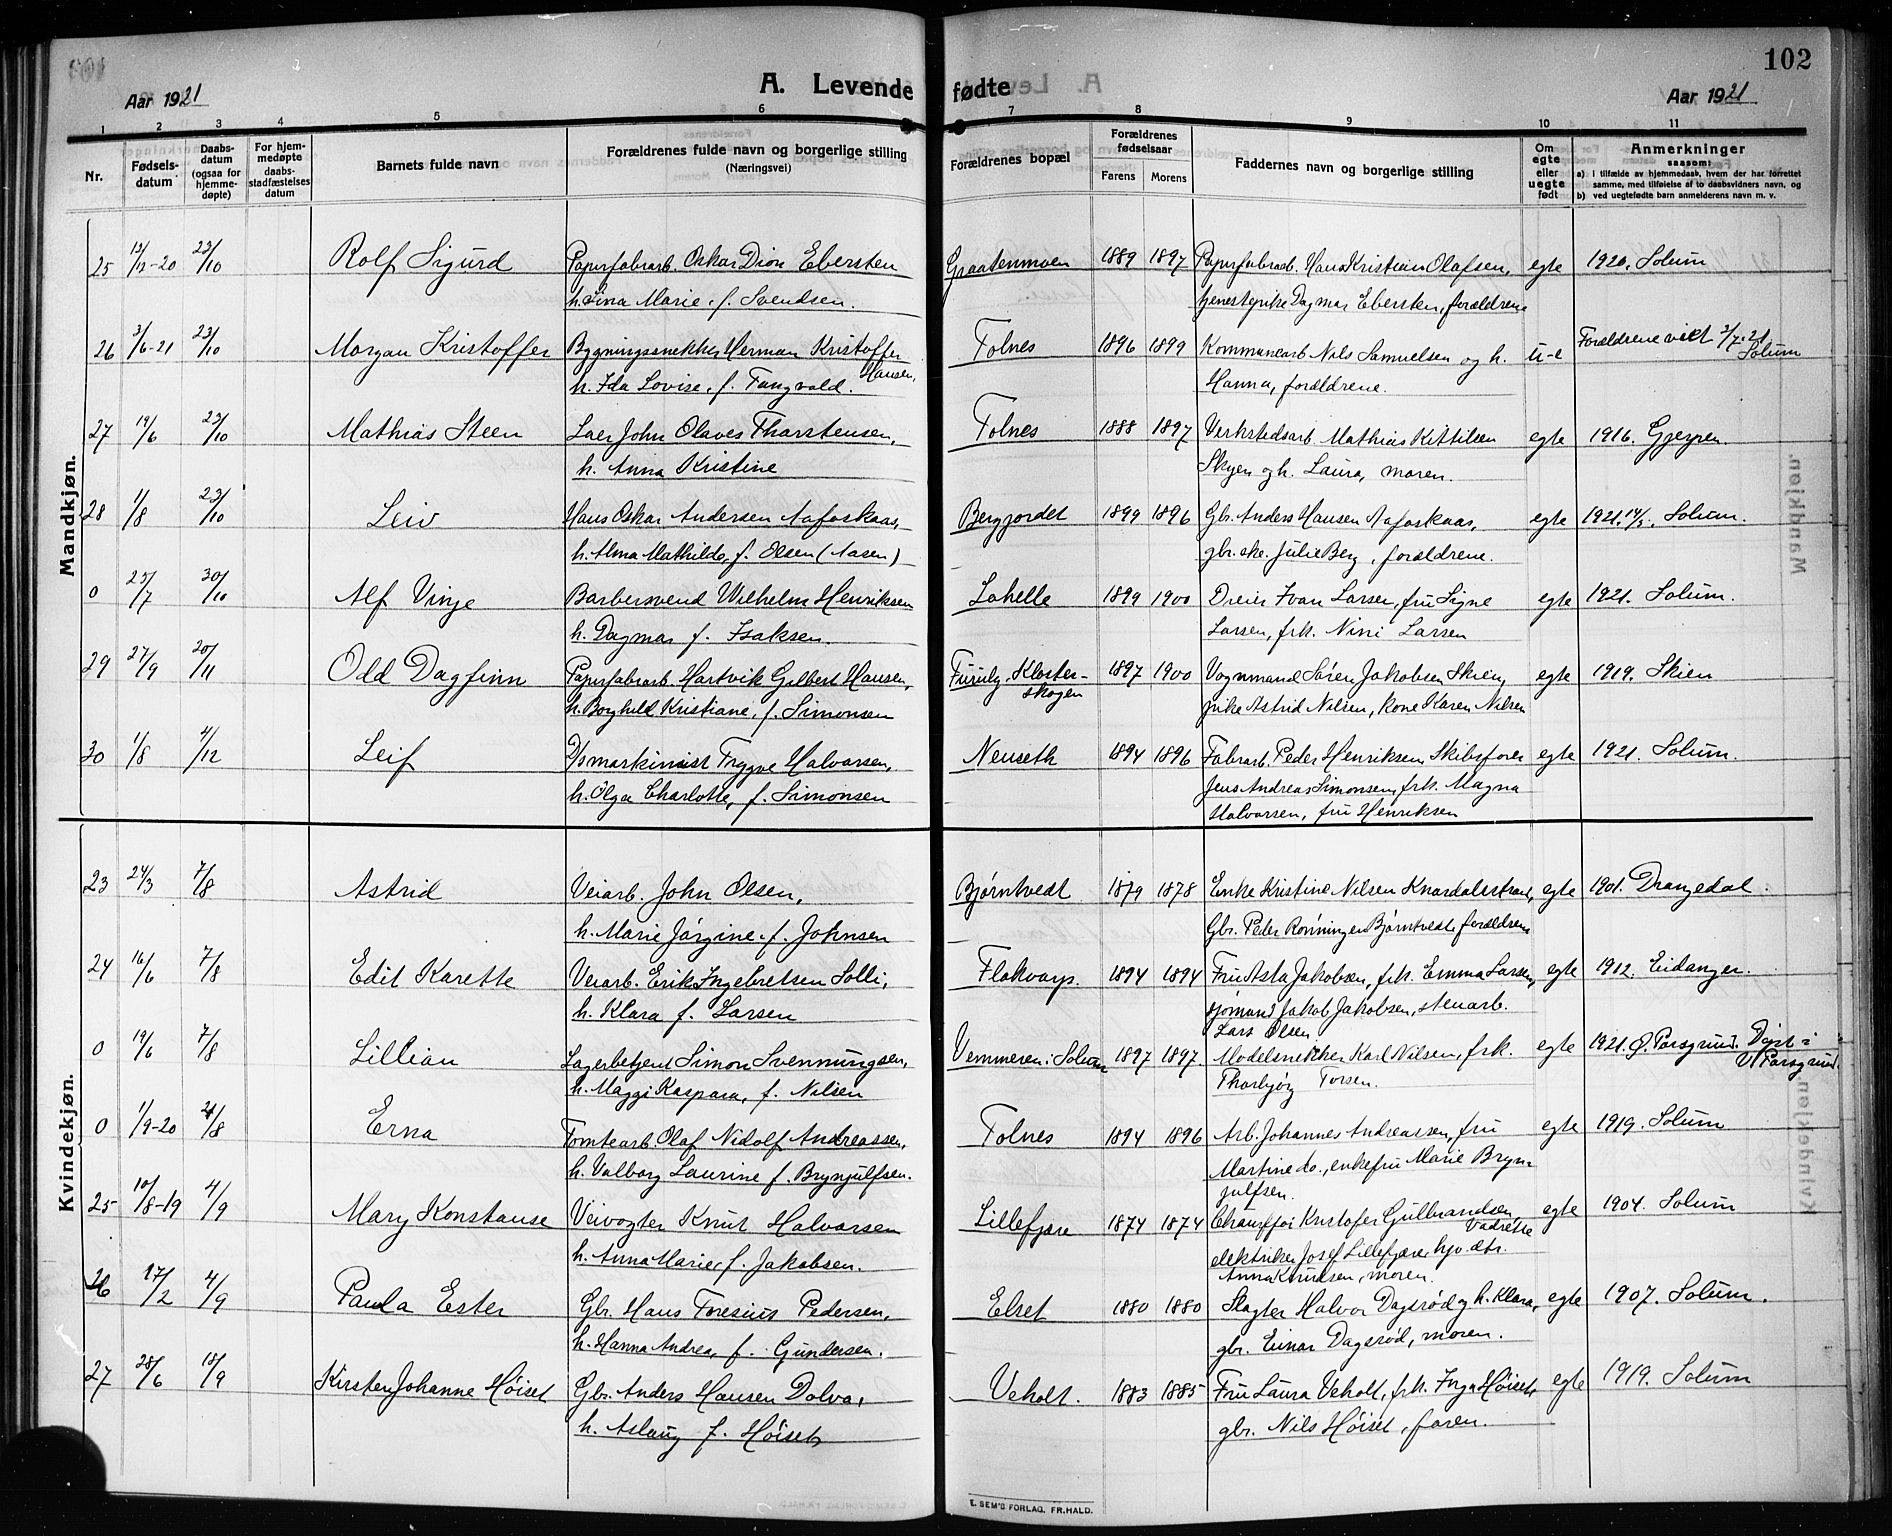 102
Aar 1921
A. Levende fødte
Aar 1921
1 2 3 4 5 6 7 8 9 10 11
Nr.
Fødselsdatum
Daabsdatum (ogsaa for hjemmedøpte)
For hjemmedøpte daabsstadfæstelses datum
Barnets fulde navn
Forældrenes fulde navn og borgerlige stilling
(Næringsvei)
Forældrenes bopæl
Forældrenes fødselsaar
Farens Morens
Faddernes navn og borgerlige stilling
Om egte eller uegte født
Anmerkninger
saasom:
a) i tilfælde av hjemmedaab, hvem der har forrettet samme, med tilføielse af to daabsvidners navn, og
b) ved uegtefødte barn anmelderens navn m. v.
Mandkjøn.
25 13/12-20 23/10 Rolf Sigurd Papirfabrarb. Oskar Dion Ebersten Graatenmoen 1889 1897 Papirfabrarb. Hans Kristian Olafsen, egte 1920. Solum
h. Lina Marie, f. Svendsen. tjenestepike Dagmar Ebersten, forældrene
26 3/6-21 23/10 Morgan Kristoffer Bygningssnekker Herman Kristoffer Tolnes 1896 1899 Kommunearb Nils Samuelsen og h. u-e Forældrene viet 2/7-21
Hansen, Solum
h. Ida Lovise, f. Tangvald. Hanna, forældrene.
27 19/6 23/10 Mathias Steen John Olaves Tharstensen, Tolnes 1888 1897 Verkstedsarb Mathias Kittilsen egte 1916. Gjerpen.
h. Anna Kristine Skyen og h. Laura, moren.
28 1/8 23/10 Leiv Hans Oskar Andersen Aafoskaas, Bergjordet 1899 1896 Gbr. Anders Hansen Aafoskaas, egte 1921, Solum.
h. Alma Mathilde, f. Olsen (Aasen) gbr.ske. Julie Berg, forældrene.
0 25/7 30/10 Alf Vinje Barbersvend Wilhelm Henriksen Lahelle 1899 1900 Dreier Ivar Larsen, fru Signe egte 1921. Solum.
h. Dagmar f. Isaksen. Larsen, frk. Nini Larsen
29 27/9 20/11 Odd Dagfinn Papirfabrarb. Hartvik Gilbert Hansen, Furuly Kloster- 1897 1900 Vognmand Søren Jakobsen Skien, egte 1919. Skien
skogen
h. Borghild Kristiane, f. Simonsen pike Astrid Nilsen, kone Karen Nilsen
30 1/8 4/12 Leif Ds maskinist Trygve Halvorsen, Nenseth 1894 1896 Fabrarb. Peder Henriksen, Skibsfører egte 1921. Solum.
h. Olga Charlotte, f. Simonsen Jens Andreas Simonsen, frk. Magna
Halvorsen, fru Henriksen
Kvindekjøn.
23 24/3 7/8 Astrid Veiarb. John Olsen, Bjørntvedt 1879 1878 Enke Kristine Nilsen Knardalsstrand, egte 1901. Drangedal.
h. Marie Jørgine, f. Johnsen Gbr. Peder Rønningen Bjørntvedt, forældrene
24 16/6 7/8 Edit Karette Veiarb. Erik Ingebretsen Solli, Flakvarp. 1894 1894 Fru Asta Jakobsen, frk. Emma Larsen, egte 1912. Eidanger.
h. Klara f. Larsen sjømand Jakob Jakobsen, stenarb.
Lars Olsen
0 19/6 7/8 Lillian Lagerbetjent Simon Svenningsen, Vemmeren i Solum 1897 1897. Modelsnekker Karl Nilsen, frk. egte 1921. Ø. Porsgrund. Døpt i
V. Porsgrund.
h. Maggi Kaspara, f. Nilsen Thorbjørg Torsen.
0 1/9-20 21/8 Erna Tomtearb. Olaf Nidolf Andreassen, Tolnes 1894 1896 Arb. Johannes Andreassen, fru egte 1919. Solum
h. Valborg Laurine f. Brynjulfsen. Martine do., enkefru Marie Bryn-
julfsen.
25 10/8-19 4/9 Mary Konstanse Veivogter Knut Halvorsen Lillefjære 1874 1874 Chauffør Kristofer Gulbrandsen, egte 1904. Solum
Vadrette
h. Anna Marie, f. Jakobsen. elektriker Josef Lillefjære, hjv. dtr.
Anna Knudsen, moren.
26 17/2 4/9 Paula Ester Gbr. Hans Toresius Pedersen, Elset 1880 1880 Slagter Halvor Dagsrød og h. Klara, egte 1907. Solum.
h. Hanna Andrea, f. Gundersen. gbr. Einar Dagsrød, moren.
27 28/6 18/9 Kirsten Johanne Høiset Gbr. Anders Hansen Dolva, Veholt. 1883 1885 Fru Laura Veholt, frk. Inga Høiset, egte 1919. Solum
h. Aslaug f. Høiset gbr. Nils Høiset, faren.
E. SEM'S FORLAG. FR.HALD.